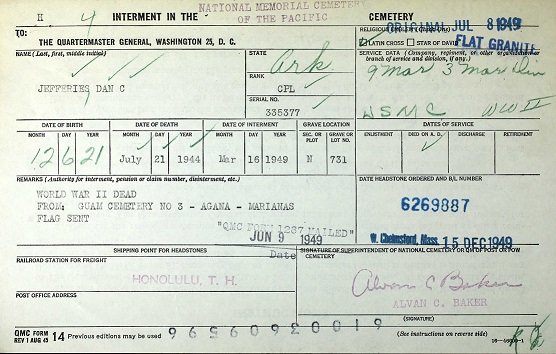 H 4 INTERMENT IN THE NATIONAL MEMORIAL CEMETERY OF THE PACIFIC CEMETERY
TO:
THE QUARTERMASTER GENERAL, WASHINGTON 25, D. C.
RELIGIOUS ORIGINAL JUL 8 1949
LATIN CROSS STAR OF DAVID FLAT GRANITE
NAME (Last, first, middle initial)
JEFFERIES DAN C
STATE
Ark
RANK
CPL
SERIAL NO.
335377
SERVICE DATA (Company, regiment, or other organization, branch of service and division, if any)
9 Mar 3 Mar Div
USMC WW II
DATE OF BIRTH DATE OF DEATH DATE OF INTERMENT GRAVE LOCATION DATES OF SERVICE
MONTH DAY YEAR MONTH DAY YEAR MONTH DAY YEAR SEC. OR PLOT GRAVE OR LOT NO. ENLISTMENT DIED ON A. D. DISCHARGE RETIREMENT
12 6 21 July 21 1944 Mar 16 1949 N 731
REMARKS (Authority for interment, pension or claim number, disinterment, etc.)
WORLD WAR II DEAD
FROM: GUAM CEMETERY NO 3 - AGANA - MARIANAS
FLAG SENT
"QMC FORM 1237 MAILED"
JUN 9 1949
Date
DATE HEADSTONE ORDERED AND B/L NUMBER
6269887
W. Chelmsford, Mass. 15 DEC 1949
SHIPPING POINT FOR HEADSTONES
RAILROAD STATION FOR FREIGHT
HONOLULU, T. H.
POST OFFICE ADDRESS
SIGNATURE OF SUPERINTENDENT OF NATIONAL CEMETERY OR QM OF POST OR POW CEMETERY
Alvan C Baker
ALVAN C. BAKER
(SIGNATURE)
QMC FORM REV 1 AUG 45 14 Previous editions may be used
(See instructions on reverse side)